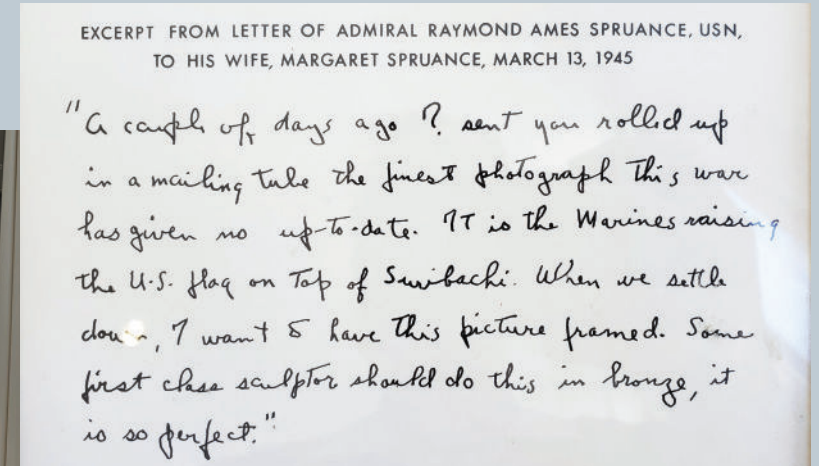 EXCERPT FROM LETTER OF ADMIRAL RAYMOND AMES SPRUANCE, USN,
TO HIS WIFE, MARGARET SPRUANCE, MARCH 13, 1945
"A couple of days ago I sent you rolled up
in a mailing tube the finest photograph this war
has given us up-to-date. It is the Marines raising
the U.S. flag on top of Suribachi. When we settle
down, I want to have this picture framed. Some
first class sculptor should do this in bronze, it
is so perfect."